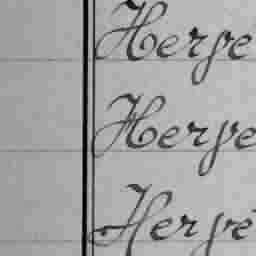 Herge
Herge
Herge